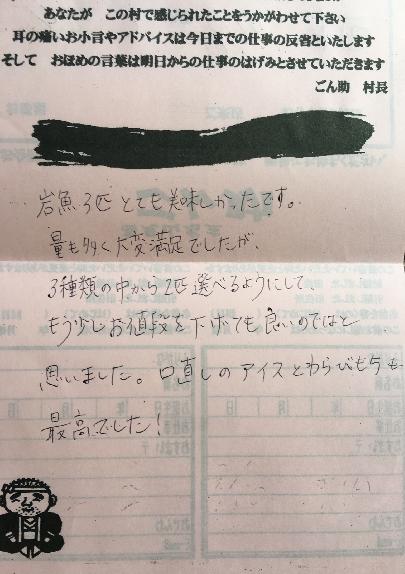 あなたが　この村で感じられたことをうかがわせて下さい
耳の痛いお小言やアドバイスは今日までの仕事の反省といたします
そして　おほめの言葉は明日からの仕事のはげみとさせていただきます
ごん助　村長
岩魚3匹とても美味しかったです。
量も多く大変満足でしたが、
3種類の中から2匹選べるようにして、
もう少しお値段を下げても良いのではと
思いました。口直しのアイスとわらびもちも
最高でした！